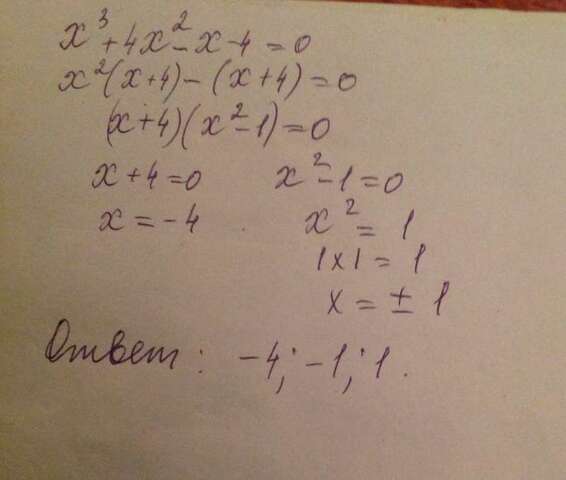 x³ + 4x² - x - 4 = 0
x²(x+4) - (x+4) = 0
(x+4)(x²-1) = 0
x + 4 = 0 x² - 1 = 0
x = -4 x² = 1
|x| = 1
x = ± 1
Ответ: -4; -1; 1.